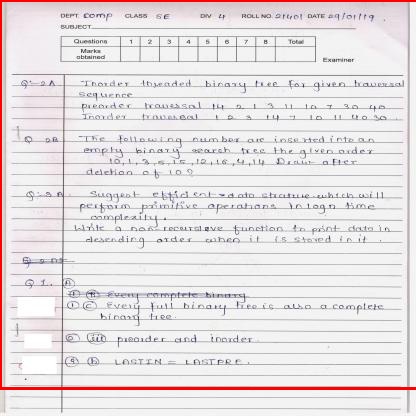 DEPT. Comp CLASS SE DIV 4 ROLL NO. 21401 DATE 29/01/19.
SUBJECT
Questions 1 2 3 4 5 6 7 8 Total
Marks obtained
Examiner
Q:-2A Inorder threaded binary tree for given traversal
sequence
preorder traversal 14 2 1 3 11 10 7 30 40
Inorder traversal 1 2 3 14 7 10 11 40 30.
Q 2B The following number are inserted into an
empty binary search tree the given order
10,1,3,5,15,12,16,4,14 Draw after
deletion of 10?
Q:-3 A. Suggest efficient data which will
perform primitive operations in logn time
complexity.
Write a non-recursive function to print data in
desending order when it is stored in it.
Q 1. A
Every complete binary
1 C Every full binary tree is also a complete
binary tree.
iii preorder and inorder.
b LASTIN = LASTPRE.